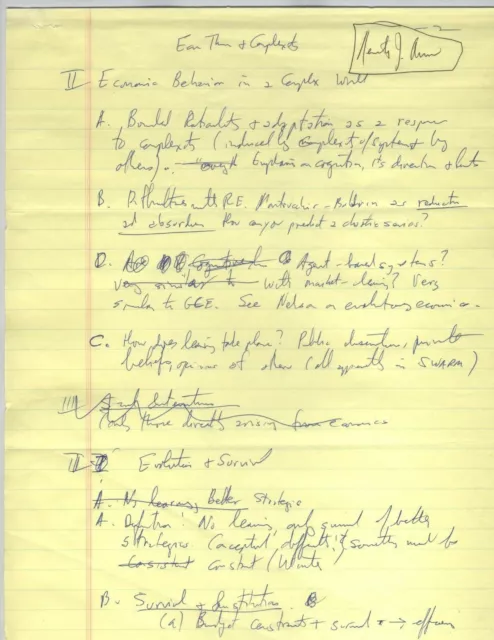 Econ Thy & Complexity
Kenneth J. Arrow
II Economic Behavior in a Complex World
A. Bounded Rationality & adaptation as a response
to complexity (induced by complexity of systems & by
others). Emphasis on cognition, its direction & limits
B. Difficulties with R.E. as reductio
ad absurdum How can you predict a chaotic series?
D. Agent-based systems?
very similar to with market-clearing? Very
similar to GCE. See Nelson on evolutionary economics.
C. How does learning take place? Public observations, private
beliefs, opinions of others (all apparently in SWARM)
III
(only those directly arising from economics
III Evolution & Survival
A. No learning Better Strategies
A. Definition: No learning, only survival of better
strategies Conceptual difficulty: something must be
consistent constant (Winter)
B. Survival & Institutions.
(a) Budget constraints + survival →